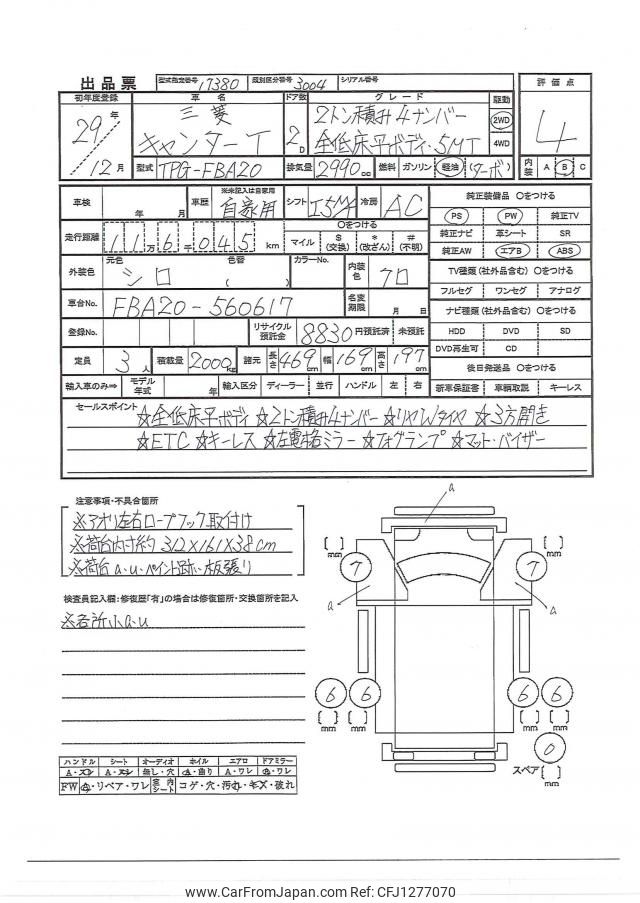 出品票 型式指定番号 17380 類別区分番号 3004 シリアル番号
初年度登録 車名 ドア数 グレード 駆動 評価点
29年 三菱 2D 2トン積み4ナンバー 2WD 4
12月 キャンターT 全低床平ボディ・5MT 4WD
型式 TPG-FBA20 排気量 2990cc 燃料 ガソリン 軽油 (ターボ) 内装 A B C
車検 年 月 車歴 ※未記入は自家用 自家用 シフト I5M 冷房 AC 純正装備品 ○をつける
PS PW 純正TV
走行距離 11万6千045km ○をつける マイル $(交換) *(改ざん) #(不明) 純正ナビ 革シート SR
純正AW エアB ABS
外装色 元色 シロ 色替 ( ) カラーNo. 内装色 クロ TV種類(社外品含む) ○をつける
フルセグ ワンセグ アナログ
車台No. FBA20-560617 名変期限 月 日 ナビ種類(社外品含む) ○をつける
登録No. リサイクル預託金 8830円預託済 未預託 HDD DVD SD
DVD再生可 CD
定員 3人 積載量 2000kg 諸元 長さ 469cm 幅 169cm 高さ 197cm 後日発送品 ○をつける
輸入車のみ⇒ モデル年式 年 輸入区分 ディーラー 並行 ハンドル 左 右 新車保証書 車輌取説 キーレス
セールスポイント ☆全低床平ボディ ☆2トン積み4ナンバー ☆リヤWタイヤ ☆3方開き
☆ETC ☆キーレス ☆左電格ミラー ☆フォグランプ ☆マット・バイザー
注意事項・不具合箇所
※アオリ左右ロープフック取付け
※荷台内寸約312×161×38cm
※荷台a.u.ペイント跡い板張り
検査員記入欄:修復歴「有」の場合は修復箇所・交換箇所を記入
※各所小a.u
a
[ ]mm 7 7 [ ]mm
a a
6 6 6 6
[ ]mm [ ]mm [ ]mm [ ]mm
0
スペア [ ]mm
ハンドル シート オーディオ ホイル エアロ ドアミラー
A・スレ A・スレ 無し・穴 A・曲り A・ワレ A・ワレ
FW A・リペア・ワレ 室内シート コゲ・穴・汚れ・キズ・破れ
www.CarFromJapan.com Ref: CFJ1277070